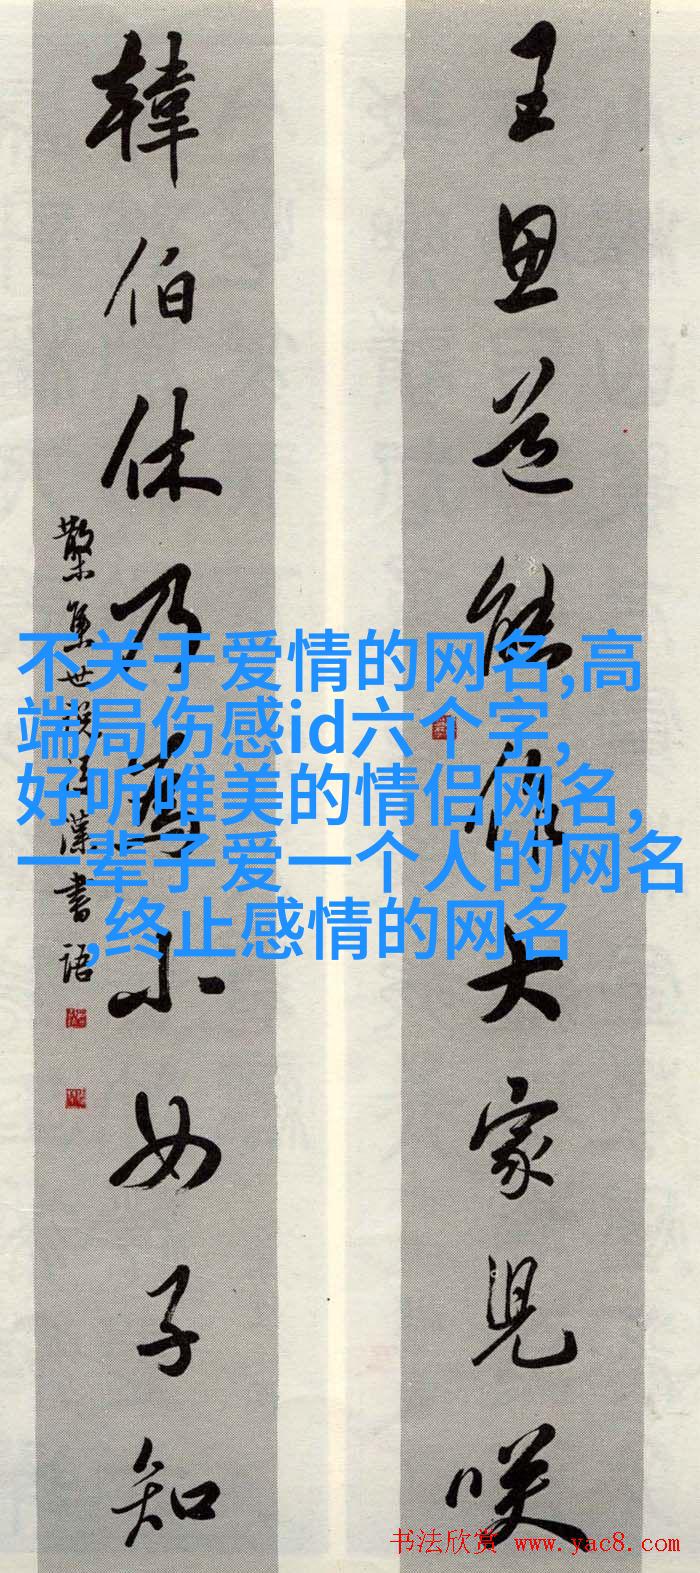 王思道能作大家兒咲
韓伯休乃為小女子知
集世說漢書語
不关于爱情的网名,高
端局伤感id六个字,
好听唯美的情侣网名,
一辈子爱一个人的网名
,终止感情的网名
书法欣赏 www.yac8.com